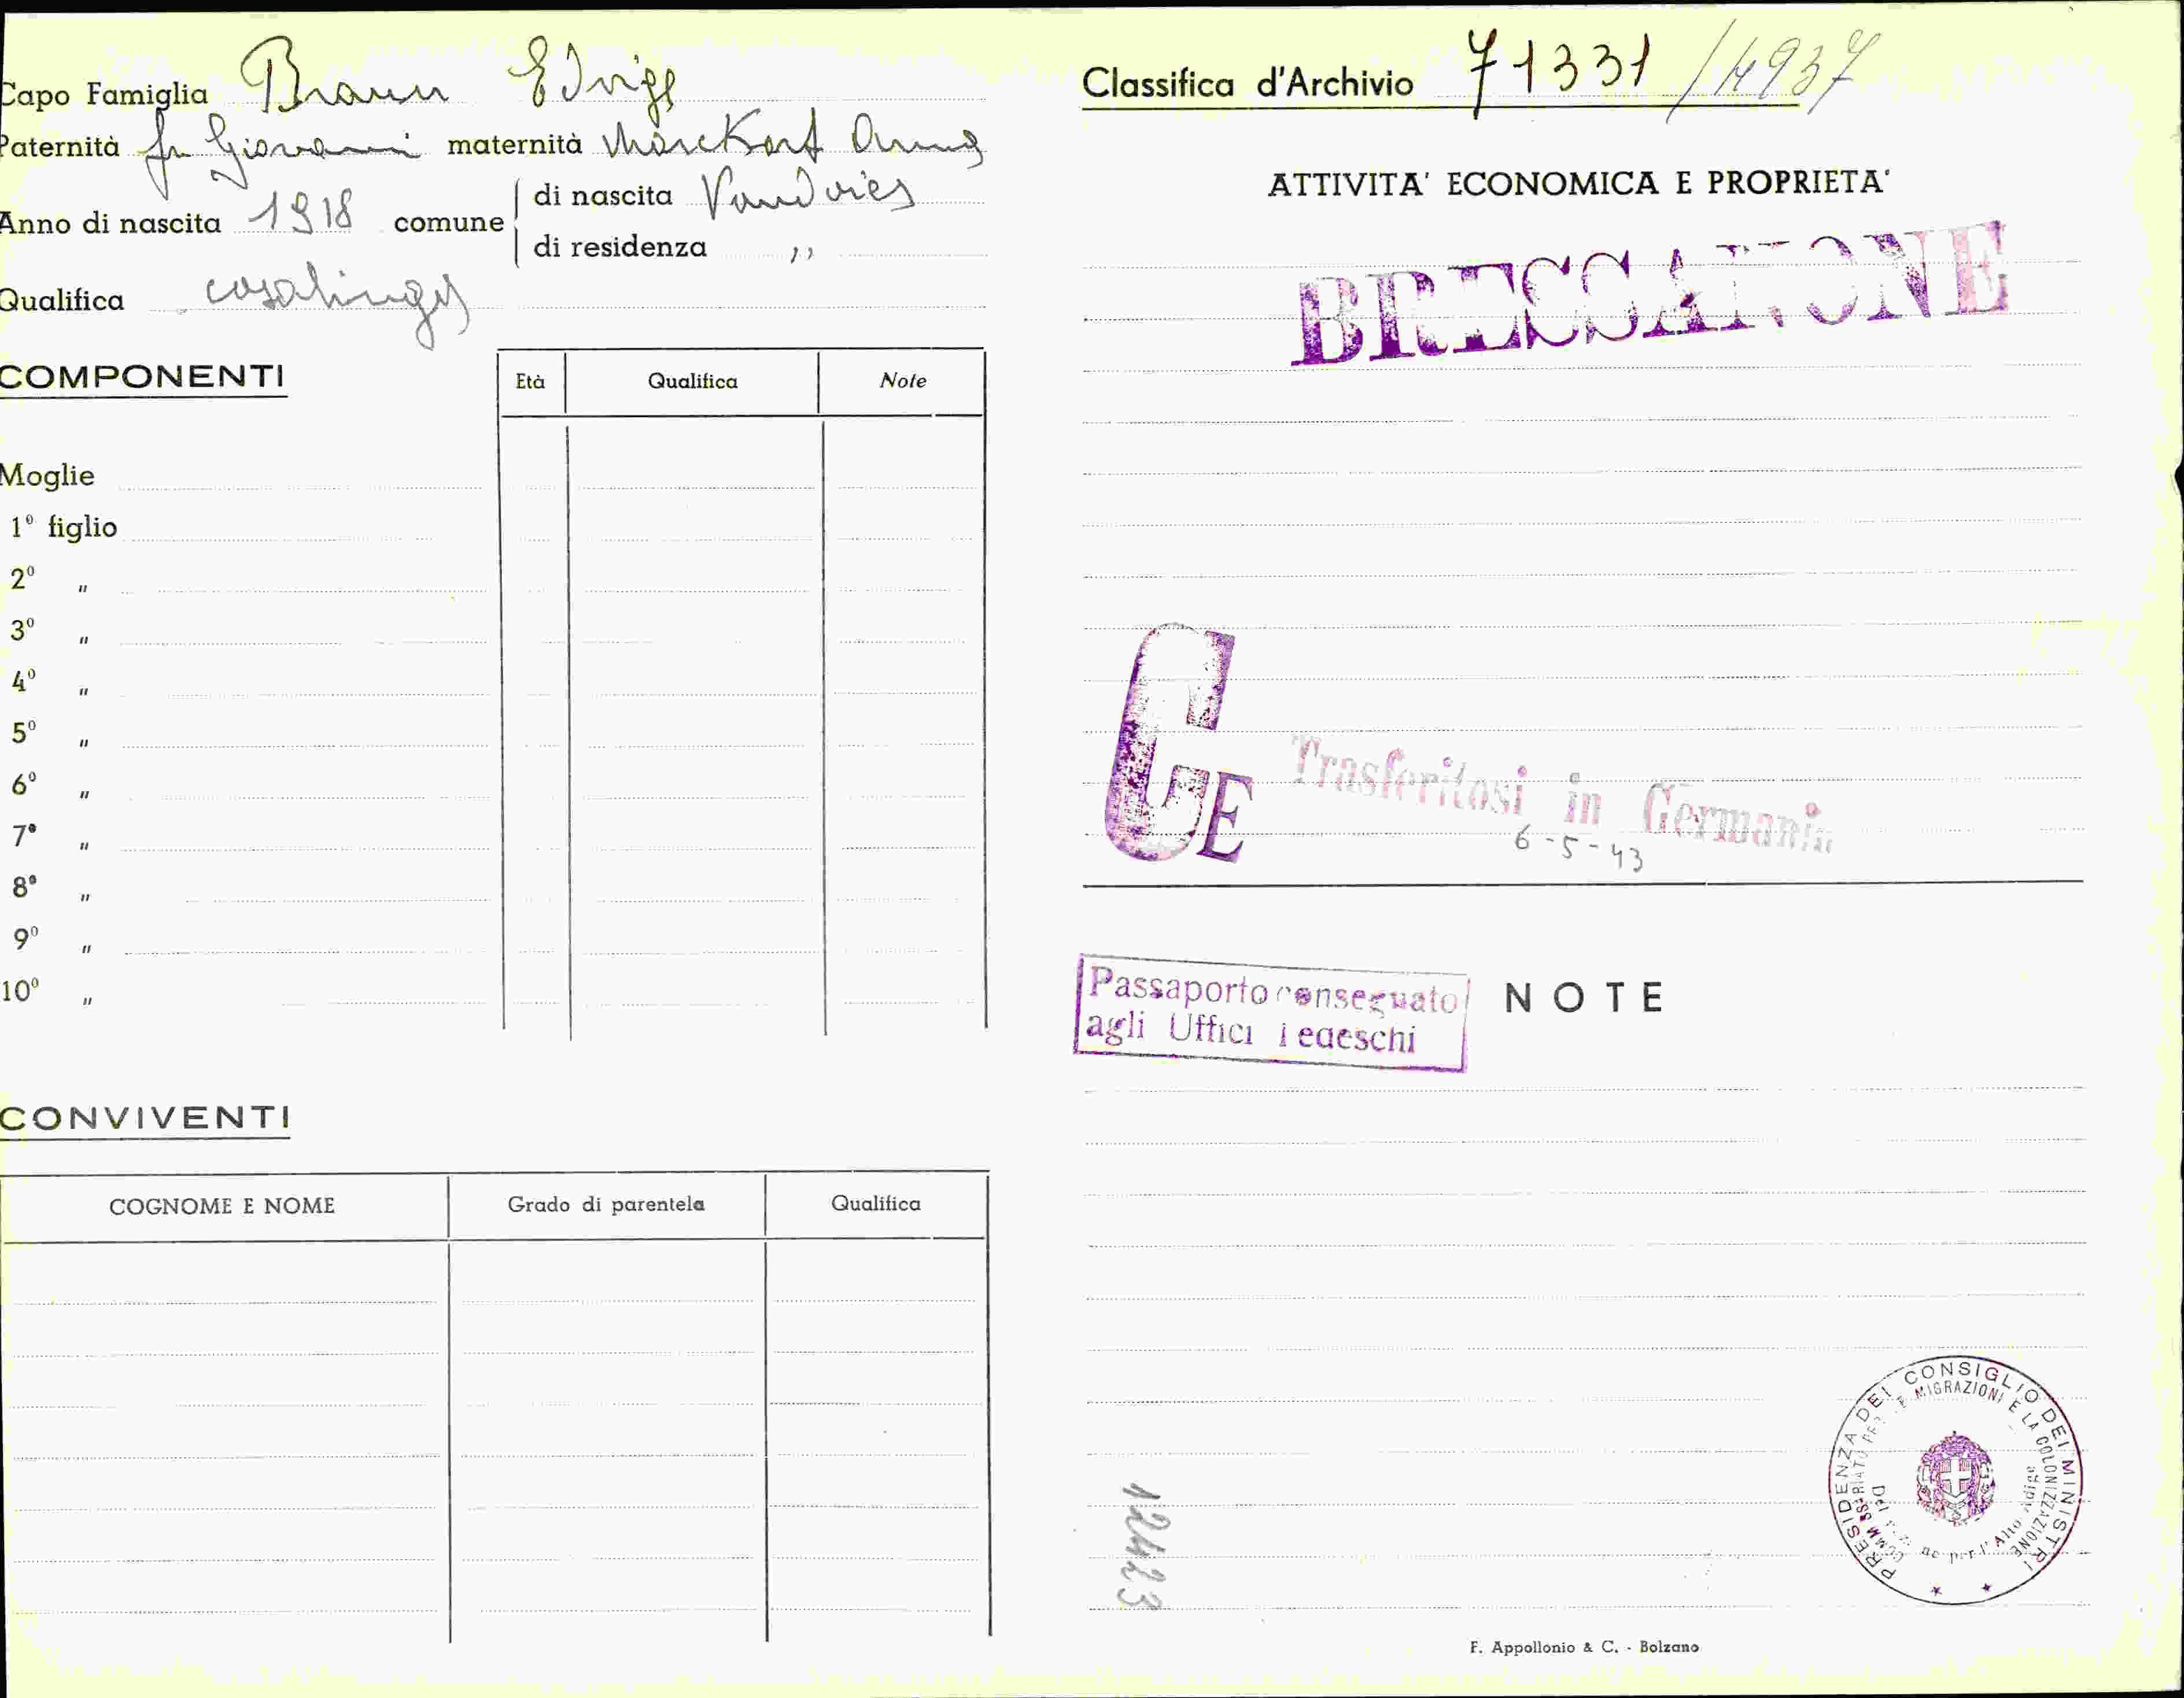 Capo Famiglia Braun Edvige
Paternità fu Giovanni maternità Marckart Anna
Anno di nascita 1918 comune di nascita Vandoies
di residenza ,,
Qualifica casalinga
COMPONENTI Età Qualifica Note
Moglie
1º figlio
2º "
3º "
4º "
5º "
6º "
7º "
8º "
9º "
10º "
CONVIVENTI
COGNOME E NOME Grado di parentela Qualifica
Classifica d'Archivio 71331 /14937
ATTIVITA' ECONOMICA E PROPRIETA'
BRESSANONE
GE
Trasferitosi in Germania
6-5-43
Passaporto consegnato
agli Uffici Tedeschi
NOTE
PRESIDENZA DEL CONSIGLIO DEI MINISTRI
COMMISSARIATO PER LE MIGRAZIONI E LA COLONIZZAZIONE
per l'Alto Adige
12423
F. Appollonio & C. - Bolzano